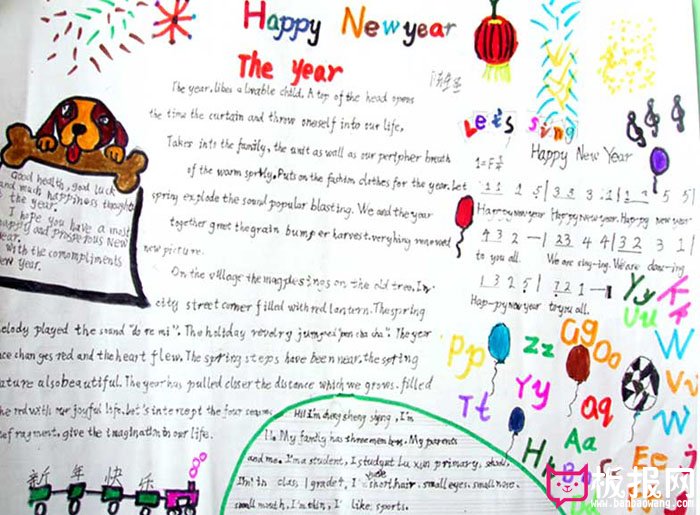 Happy New year
The Year
The year, likes a lovable child. A top of the head opens
the time the curtain and throw oneself into our life,
Takes into the family, the unit as wall as our peripher breath
of the warm sprkly. Puts on the fashion clothes for the year. Let
spring explode the sound popular blasting. We and the year
together great the grain bumper harvest. verything renewed
new picture.
On the village the magpie sings on the old tree. In
city street corner filled with red lantern. The spring
elody played the sound "do re mi". The holiday revelry jumped "pen cha cha". The year
ace changes red and the heart flew. The spring steps have been near. the spring
ature also beautiful. The year has pulled closer the distance which we grows. filled
he red with our joyful life. Let's intercept the four seasons
ef ragment, give the imagination in our life.
Good health, good luck
and much happiness throught
the year.
I hope you have a most
happy and prosperous New
Year.
With the comompliments
New year.
新年快乐
Hi! I'm cheng sheng siying, I'm
11. My family has three members. My parents
and me. I'm a student, I study at Lu xun primary, school,
I'm in clas 1 grade 1, I short hair. small eyes. small nose.
small mouth, I'm thin, I like sports.
Let's sing
Happy New Year
1=F 3/4
1 1 1 5 | 3 3 3 1 | 1 3 5 5
Happy new year Happy New year. Hapy new year
4 3 2 — | 2 3 4 4 | 3 2 3 1
to you all. We are sing-ing. We are danc-ing
1 3 2 5 | 7 2 1 —
Hap-py new year to you all.
Yy
Uu
Kk
Gg
Oo
W
Pp
zz
Vv
Yy
Tt
aq
Aa
Hh
Ee
板报网
www.banbaowang.com